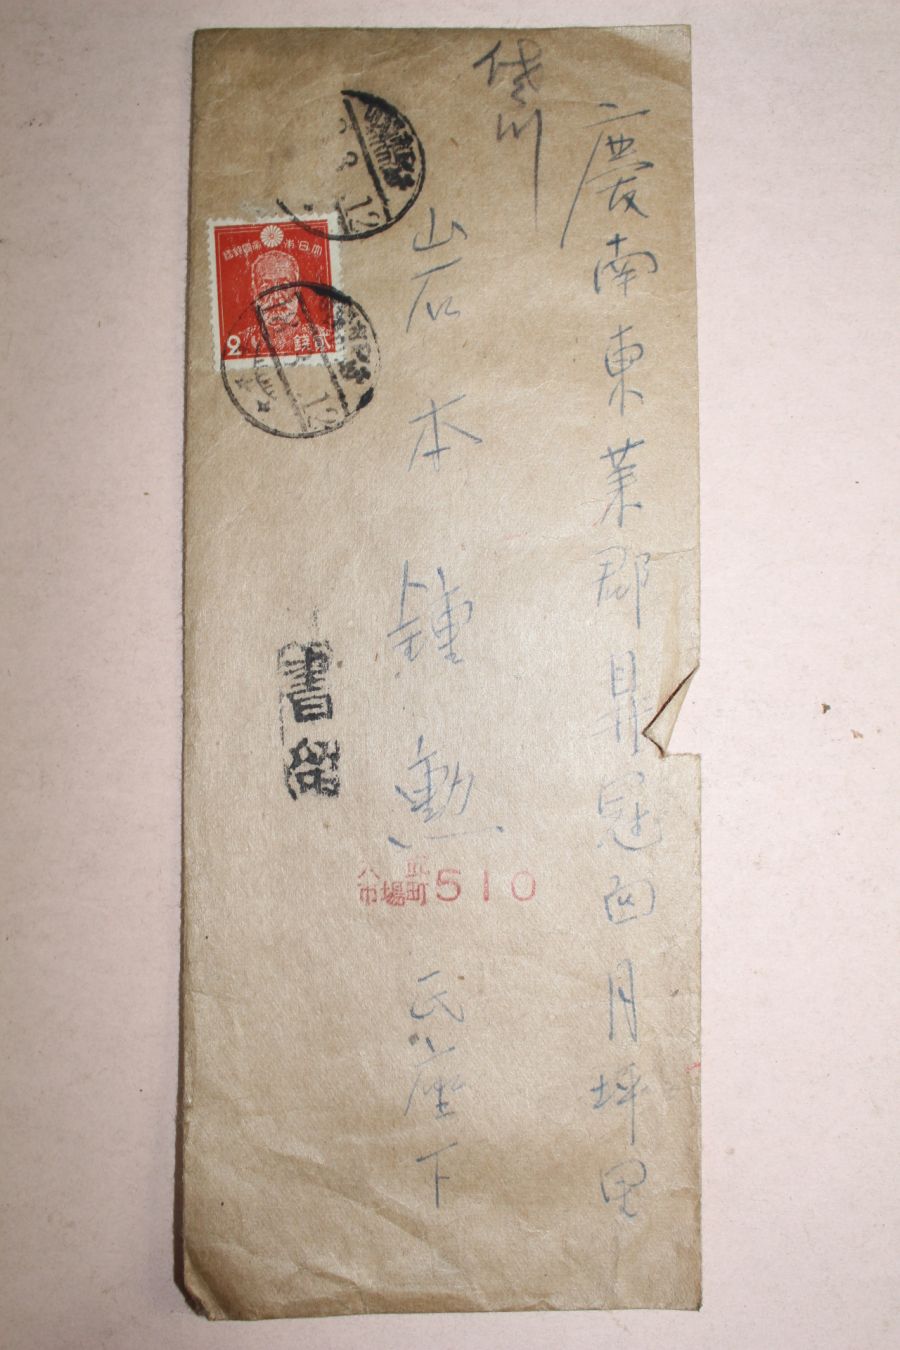 慶南東萊郡鼎冠面月坪里
山石本鍾勲氏座下
大日本帝國郵便
2
貳錢
12
12
市場町510